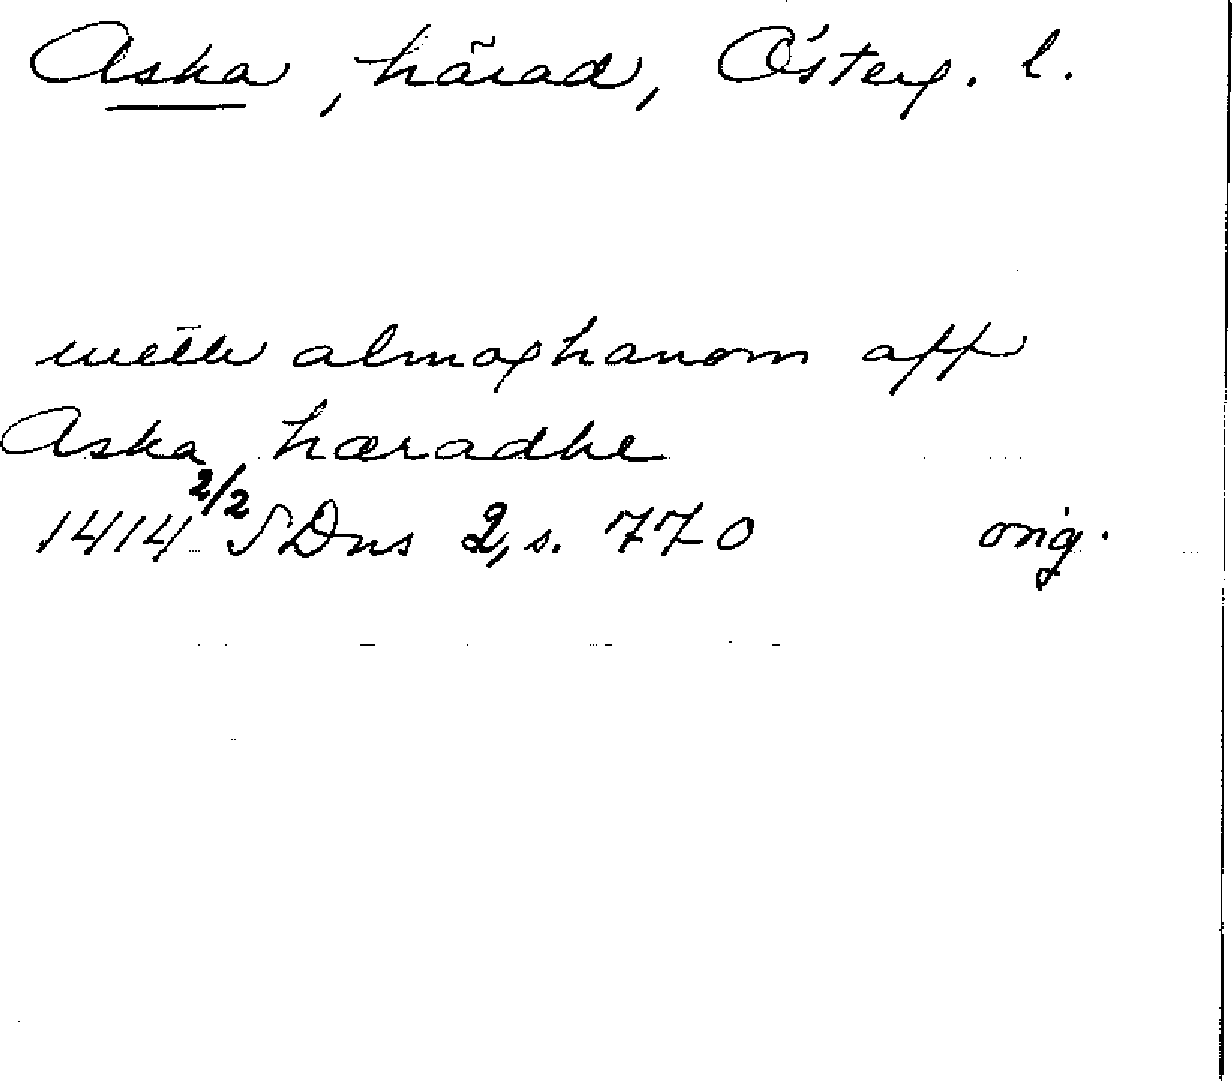 Aska, härad, Österg. l.
meth almoghanom aff
Aska hæradhe
1414 2/2 SDns 2, s. 770 orig.